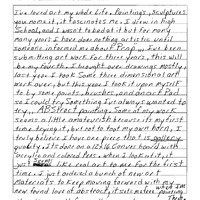 I've loved art my whole life. Paintings, sculptures
you name it, it fascinates me. I drew in high
School, and I wasn't bad at it but for so
many years I have done nothing artistic until
someone informed me about Prap, I've been
submitting art work for three years, this will
be my fourth. I brought over drawings mostly,
last year I took some three dimensional art
work over, but this year I took it upon myself
to buy some paints, brushes, and canvas. Just
so I could try something I've always wanted to
try, Abstract painting. Some of my work
seems a little amateurish because its my first
time trying it, but not to toot my own horn, I
truly believe I have one piece that is gallery
quality, its done on a 12x16 Canvas board with
acrylic and colored
just like real art to me. For the first
time. I just ordered a bunch of new art
Materials to keep moving forward with my
new found love of abstract, it sets